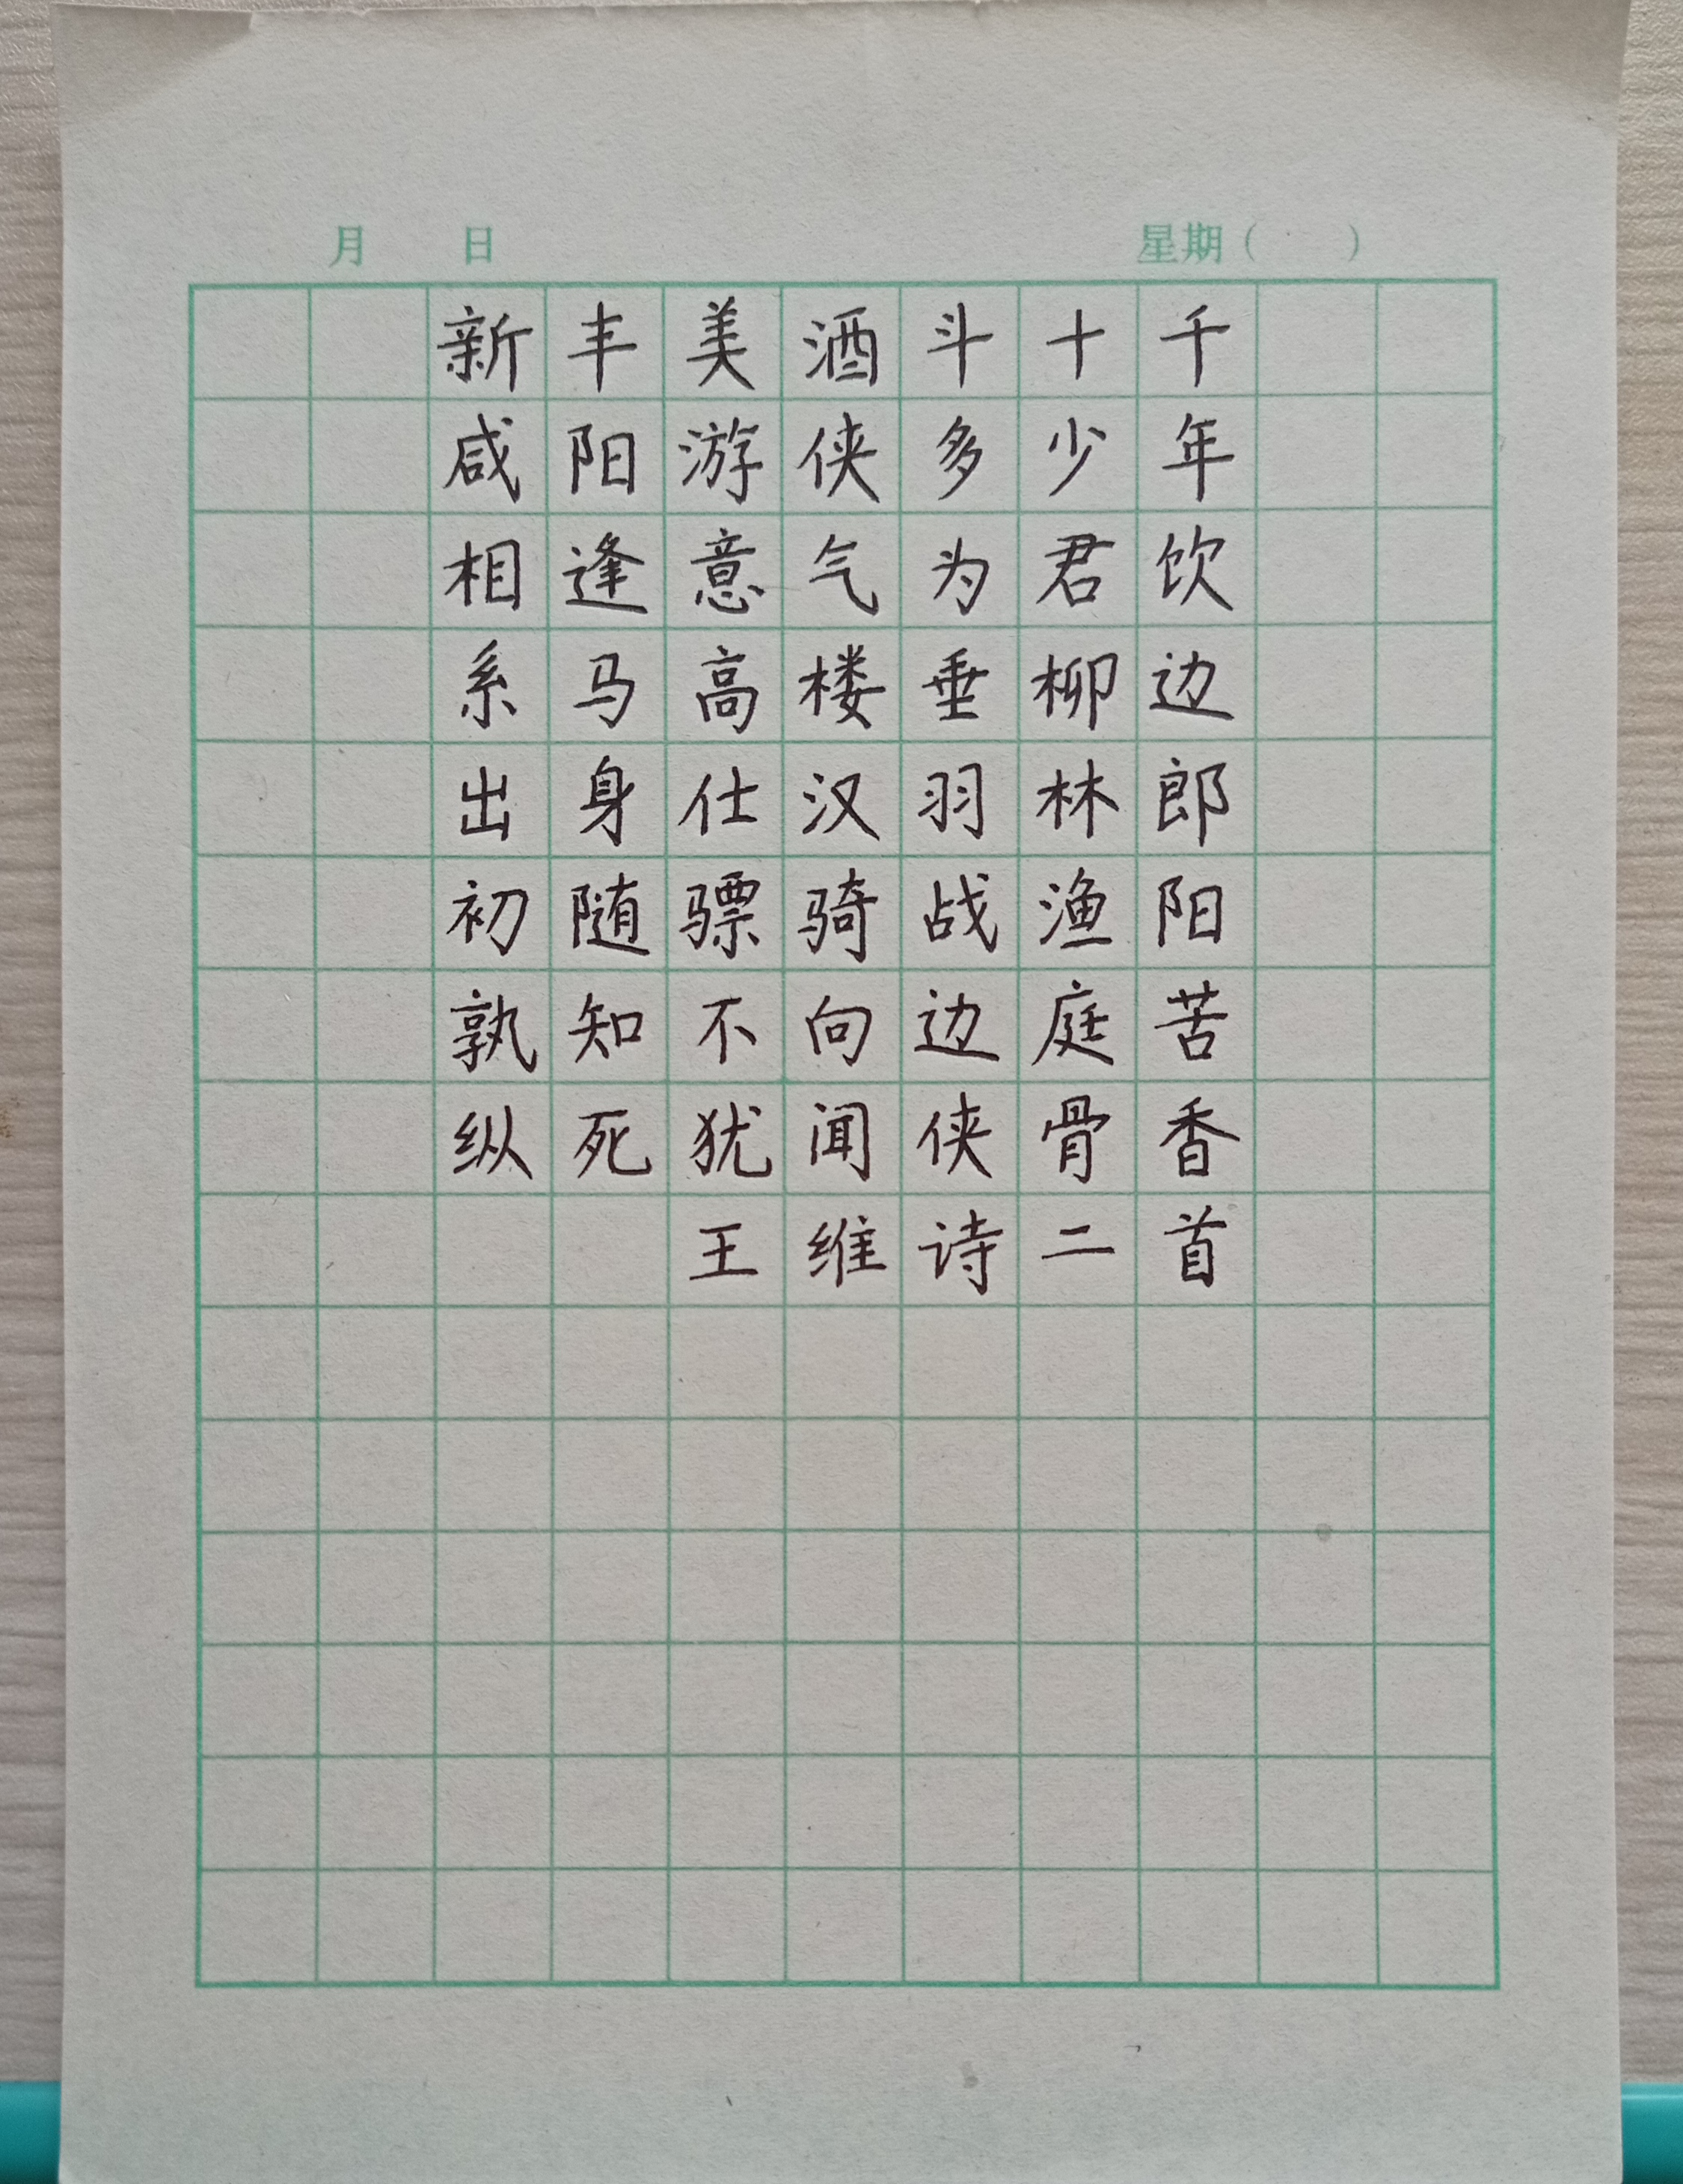 月 日 星期( )
新丰美酒斗十千
咸阳游侠多少年
相逢意气为君饮
系马高楼垂柳边
出身仕汉羽林郎
初随骠骑战渔阳
孰知不向边庭苦
纵死犹闻侠骨香
王维诗二首